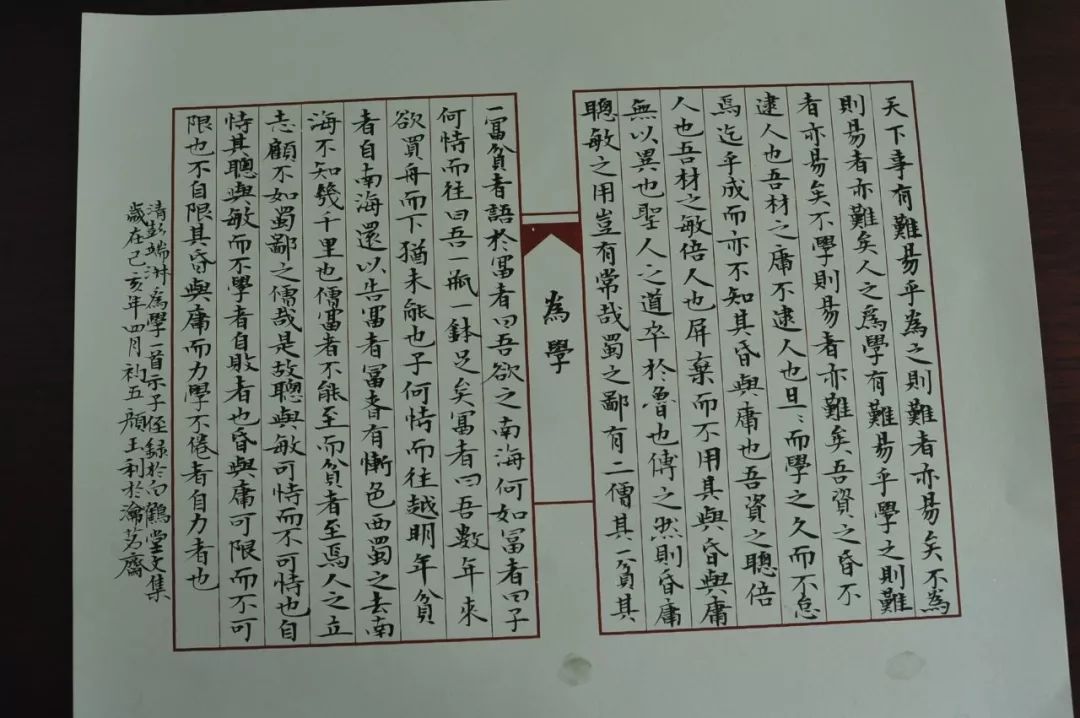 天下事有難易乎為之則難者亦易矣不為
則易者亦難矣人之為學有難易乎學之則難
者亦易矣不學則易者亦難矣吾資之昏不
逮人也吾材之庸不逮人也旦〻而學之久而不怠
焉迄乎成而亦不知其昏與庸也吾資之聰倍
人也吾材之敏倍人也屏棄而不用其與昏與庸
無以異也聖人之道卒於魯也傳之然則昏庸
聰敏之用豈有常哉蜀之鄙有二僧其一貧其
為學
一富貧者語於富者曰吾欲之南海何如富者曰子
何恃而往曰吾一瓶一鉢足矣富者曰吾數年來
欲買舟而下猶未能也子何恃而往越明年貧
者自南海還以告富者富者有慚色西蜀之去南
海不知幾千里也僧富者不能至而貧者至焉人之立
志顧不如蜀鄙之僧哉是故聰與敏可恃而不可恃也自
恃其聰與敏而不學者自敗者也昏與庸可限而不可
限也不自限其昏與庸而力學不倦者自力者也
清彭端淑為學一首示子侄錄於白鶴堂文集
歲在己亥年四月初五顏玉利於瀹茗齋